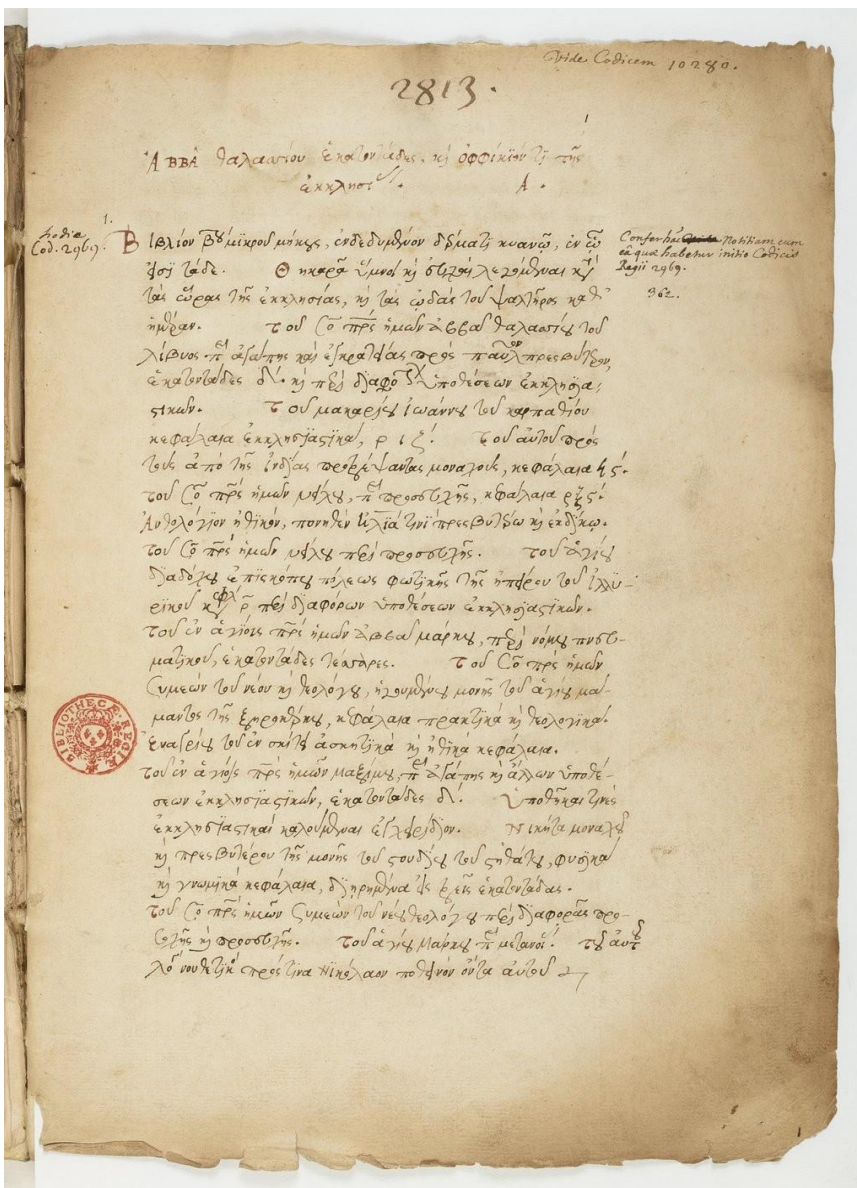 Vide Codicem 10280.
2813.
Ἀββᾶ θαλασσίου ἑκατοντάδες, καὶ ὀφφίκιον τι τῆς
ἐκκλησίας. Α.
1.
hodie
Cod. 2969.
Βιβλίον μικροῦ μήκους, ἐνδεδυμένον δέρματι κυανῷ, ἐν ᾧ
ἔστι τάδε. Θηκαρᾶ ὕμνοι καὶ στίχοι λεγόμεναι κατὰ
τὰς ὥρας τῆς ἐκκλησίας, καὶ τὰς ᾠδὰς τοῦ ψαλτῆρος καθ᾽
ἡμέραν. τοῦ ὁσίου πατρὸς ἡμῶν ἀββᾶ θαλασσίου τοῦ
λίβυος περὶ ἀγάπης καὶ ἐγκρατείας πρὸς παῦλον πρεσβύτερον,
ἑκατοντάδες δ΄. καὶ περὶ διαφόρων ὑποθέσεων ἐκκλησια-
στικῶν. τοῦ μακαρίου ἰωάννου τοῦ καρπαθίου
κεφάλαια ἐκκλησιαστικά, ριζ΄. τοῦ αὐτοῦ πρὸς
τοὺς ἀπὸ τῆς ἰνδίας προτρέψαντας μοναχούς, κεφάλαια
τοῦ ὁσίου πατρὸς ἡμῶν νείλου, περὶ προσευχῆς, κεφάλαια
Ἀνθολόγιον ἠθικόν, πονηθὲν ἠλίᾳ τινὶ πρεσβυτέρῳ καὶ ἐκδίκῳ.
τοῦ ὁσίου πατρὸς ἡμῶν νείλου περὶ προσευχῆς. τοῦ ἁγίου
διαδόχου ἐπισκόπου πόλεως φωτικῆς τῆς ἠπείρου τοῦ ἰλλυ-
ρικοῦ κεφάλαια ρ περὶ διαφόρων ὑποθέσεων ἐκκλησιαστικῶν.
τοῦ ἐν ἁγίοις πατρὸς ἡμῶν ἀββᾶ μάρκου, περὶ νόμου πνευ-
ματικοῦ, ἑκατοντάδες τέσσαρες. τοῦ ὁσίου πατρὸς ἡμῶν
Συμεὼν τοῦ νέου καὶ θεολόγου, ἡγουμένου μονῆς τοῦ ἁγίου μά-
μαντος τῆς ξηροκέρκου, κεφάλαια πρακτικὰ καὶ θεολογικά.
Εὐαγρίου τοῦ ἐν σκίτει ἀσκητικὰ καὶ ἠθικὰ κεφάλαια.
τοῦ ἐν ἁγίοις πατρὸς ἡμῶν μαξίμου, περὶ ἀγάπης καὶ ἄλλων ὑποθέ-
σεων ἐκκλησιαστικῶν, ἑκατοντάδες δ΄. Ὑποθῆκαι τινὲς
ἐκκλησιαστικαὶ καλούμεναι ἐγχειρίδιον. Νικήτα μοναχοῦ
καὶ πρεσβυτέρου τῆς μονῆς τοῦ στουδίου τοῦ στηθάτου, φυσικὰ
καὶ γνωμικὰ κεφάλαια, διῃρημένα εἰς τρεῖς ἑκατοντάδας.
τοῦ ὁσίου πατρὸς ἡμῶν Συμεὼν τοῦ νέου θεολόγου περὶ διαφορᾶς προ-
σοχῆς καὶ προσευχῆς. τοῦ ἁγίου Μάρκου περὶ μετανοίας. τοῦ αὐτοῦ
λόγος νουθετικὸς πρός τινα Νικόλαον ποθεινὸν ὄντα αὐτοῦ
Confer hanc Notitiam cum
ea quæ habetur initio Codicis
Regii 2969.
362.
BIBLIOTHECÆ REGIÆ